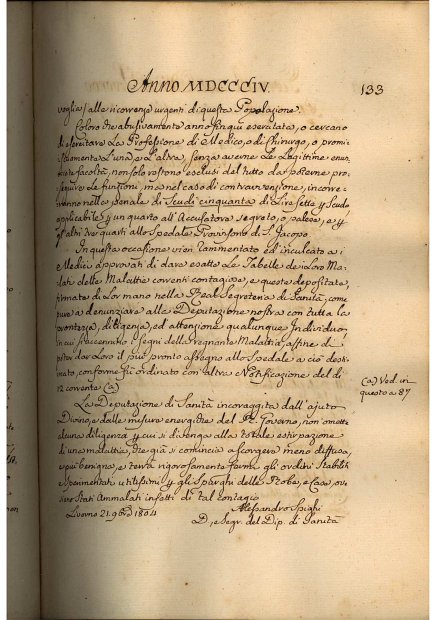 Anno MDCCCIV.
133
voglia / alle ricorrenze urgenti di questa Popolazione.
Coloro che abusivamente anno finqui esercitata, o cercano
di esercitare La Professione di Medico, o di Chirurgo, o promi-
scuamente L'una, e L'altra, senza averne Le Legittime, enes-
sarie facoltà, non solo restono esclusi del tutto da poterne pro-
seguire Le funzioni, ma nel caso di contravvenzione, incorre-
ranno nella penale di Scudi cinquanta di Lire sette p Scudo
applicabile p un quarto all'Accusatore segreto, o palese, e p
gl'altri tre quarti allo Spedale Provvisorio di S. Jacopo.
In questa occasione vien rammentato ed inculcato a i
Medici approvati di dare esatte Le Tabelle de i loro Ma-
lati delle Malattie correnti contagiose, e queste depositate,
firmate di Lor mano nella Real Segreteria di Sanità, come
pure a denunziare alla Deputazione nostra con tutta la
prontezza, diligenza, ed attenzione qualunque Individuo,
in cui si accennino i segni della regnante Malattia, affine di
poter dar Loro il più pronto accesso allo Spedale a ciò desti-
nato, conforme fù ordinato con altra Notificazione del dì
12 corrente (a)
(a) Ved. in
questo a 87
La Deputazione di Sanità incoraggita dall'ajuto
Divino, e dalle misure energiche del R. Governo, non omette
alcuna diligenza p cui si ottenga alla totale estirpazione
di una malattia, che già si comincia a scorgere meno diffusa,
e più benigna, e terrà rigorosamente fermi gli ordini stabiliti
e sperimentati utilissimi p gli Spurghi delle Robe, e Case, ove
sieno Stati Ammalati infetti di tal contagio
Livorno 21. 9bre 1804
Alessandro Spighi
D., e Segr. del Dip. di Sanità